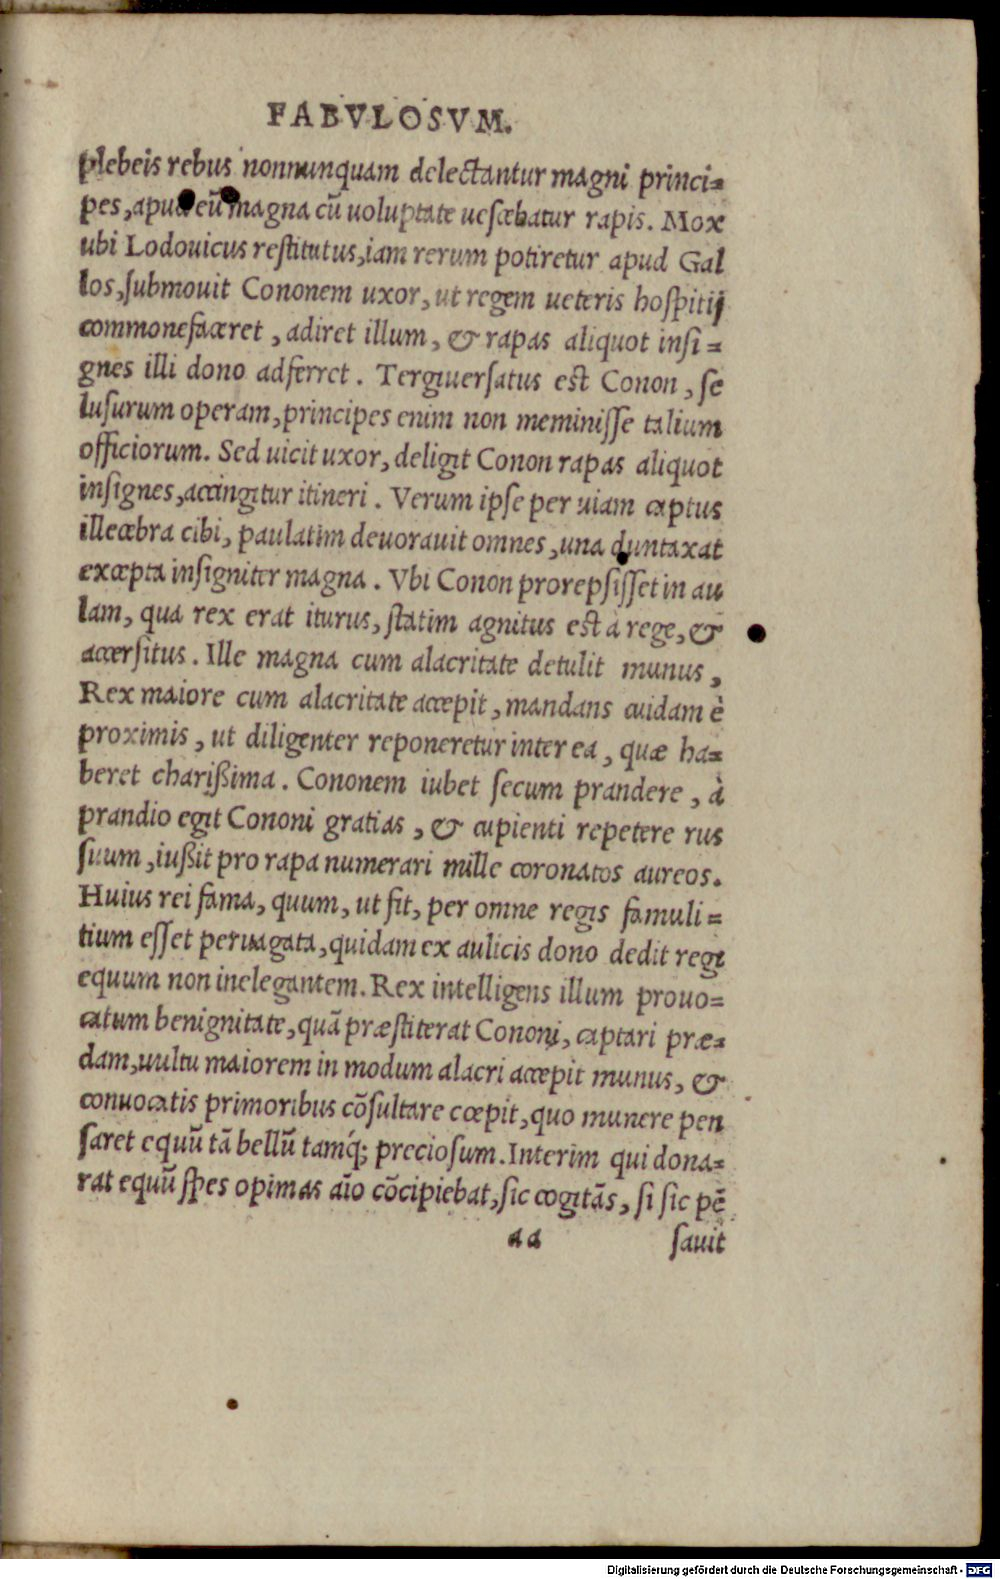 FABVLOSVM.
plebeis rebus nonnunquam delectantur magni princi=
pes, apud eũ magna cũ uoluptate uescebatur rapis. Mox
ubi Lodouicus restitutus, iam rerum potiretur apud Gal
los, submouit Cononem uxor, ut regem ueteris hospitij
commonefaceret, adiret illum, & rapas aliquot insi=
gnes illi dono adferret. Tergiuersatus est Conon, se
lusurum operam, principes enim non meminisse talium
officiorum. Sed uicit uxor, deligit Conon rapas aliquot
insignes, accingitur itineri. Verum ipse per uiam captus
illecebra cibi, paulatim deuorauit omnes, una duntaxat
excepta insigniter magna. Vbi Conon prorepsisset in au
lam, qua rex erat iturus, statim agnitus est à rege, &
accersitus. Ille magna cum alacritate detulit munus,
Rex maiore cum alacritate accepit, mandans cuidam è
proximis, ut diligenter reponeretur inter ea, quæ ha=
beret charißima. Cononem iubet secum prandere, à
prandio egit Cononi gratias, & cupienti repetere rus
suum, iußit pro rapa numerari mille coronatos aureos.
Huius rei fama, quum, ut fit, per omne regis famuli=
tium esset peruagata, quidam ex aulicis dono dedit regi
equum non inelegantem. Rex intelligens illum prouo=
catum benignitate, quã præstiterat Cononi, captari præ=
dam, uultu maiorem in modum alacri accepit munus, &
conuocatis primoribus cõsultare cœpit, quo munere pen
saret equũ tã bellũ tamq́; preciosum. Interim qui dona=
rat equũ spes opimas aĩo cõcipiebat, sic cogitãs, si sic pẽ
aa sauit
Digitalisierung gefördert durch die Deutsche Forschungsgemeinschaft - DFG